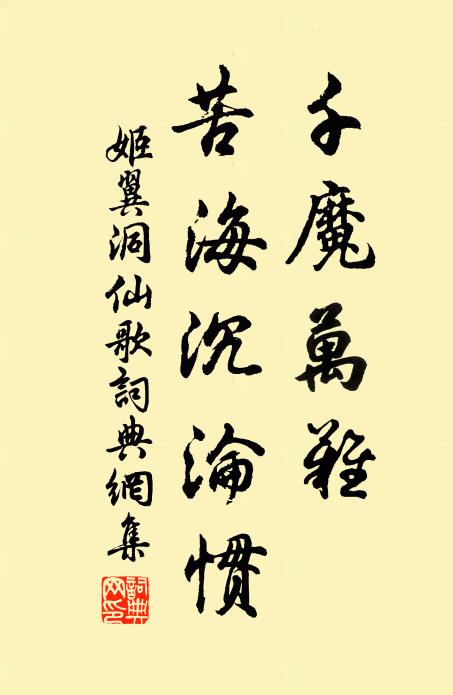 千魔萬難
苦海沉淪慣
姬翼洞仙歌詞典網集
詞典網印